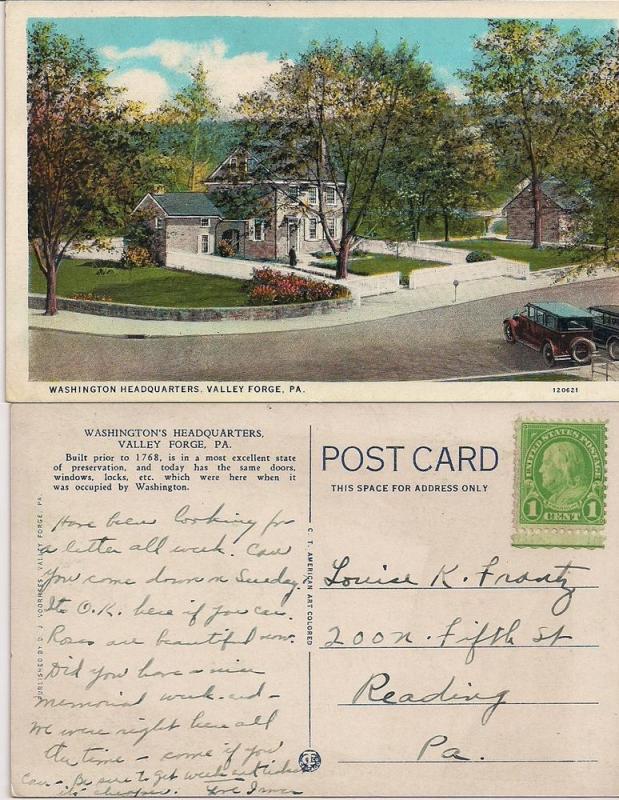 WASHINGTON HEADQUARTERS, VALLEY FORGE, PA.
120621
WASHINGTON'S HEADQUARTERS,
VALLEY FORGE, PA.
Built prior to 1768, is in a most excellent state
of preservation, and today has the same doors,
windows, locks, etc. which were here when it
was occupied by Washington.
Have been looking for
a letter all week. Can
you come down on Sunday.
Its O.K. here if you can.
Roses are beautiful now.
Did you have a nice
memorial week-end-
We were right here all
the time - come if you
can - Be sure to get week-end ticket
its cheaper. Love
PUBLISHED BY D. J. VOORHEES, VALLEY FORGE, PA.
C. T. AMERICAN ART COLORED
POST CARD
THIS SPACE FOR ADDRESS ONLY
UNITED STATES POSTAGE
1 1
CENT
Louise K. Frantz
200 N. Fifth St
Reading
Pa.